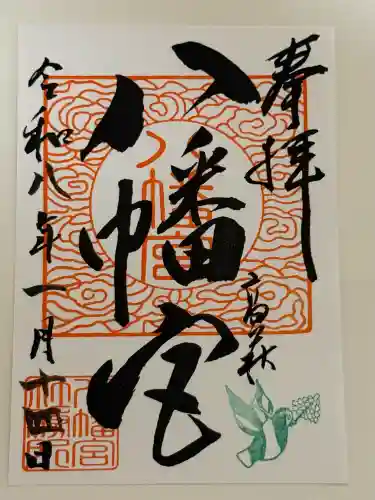 奉拝
高萩
八幡宮
令和八年一月十四日
八幡宮